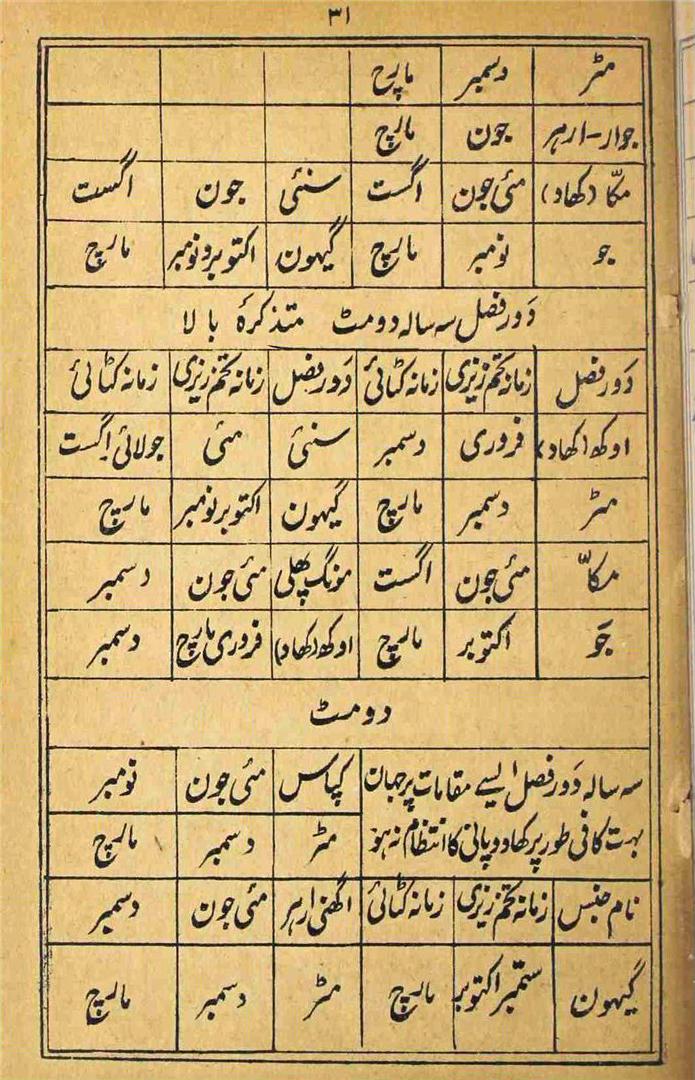 ۳۱
مٹر دسمبر مارچ
جوار-ارہر جون مارچ
مکّا (کھاد) مئی جون اگست سنئی جون اگست
جو نومبر مارچ گیہون اکتوبر و نومبر مارچ
دَور فصل سہ سالہ دومٹ متذکرۂ بالا
دَور فصل زمانہ تخم ریزی زمانہ کٹائی دَور فصل زمانہ تخم ریزی زمانہ کٹائی
اوکھ (کھاد) فروری دسمبر سنئی مئی جولائی اگست
مٹر دسمبر مارچ گیہون اکتوبر نومبر مارچ
مکاّ مئی جون اگست مونگ پھلی مئی جون دسمبر
جَو اکتوبر مارچ اوکھ (کھاد) فروری مارچ دسمبر
دومٹ
سہ سالہ دَور فصل ایسے مقامات پر جہان کپاس مئی جون نومبر
بہت کافی طور پر کھاد و پانی کا انتظام نہ ہو مٹر دسمبر مارچ
نام جنس زمانہ تخم ریزی زمانہ کٹائی اگھنی ارہر مئی جون دسمبر
گیہون ستمبر اکتوبر مارچ مٹر دسمبر مارچ